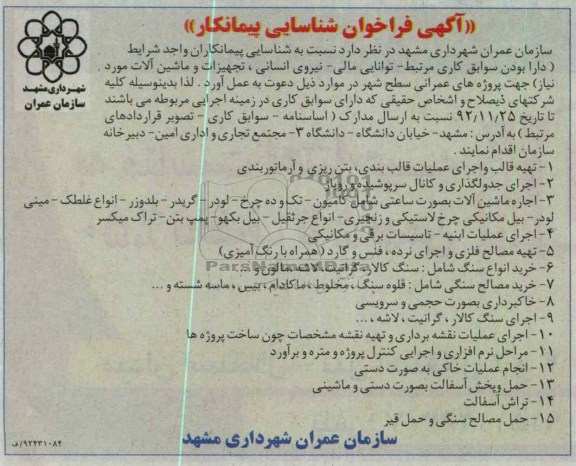 «آگهی فراخوان شناسایی پیمانکار»
شهرداری مشهد
سازمان عمران
سازمان عمران شهرداری مشهد در نظر دارد نسبت به شناسایی پیمانکاران واجد شرایط
( دارا بودن سوابق کاری مرتبط- توانایی مالی- نیروی انسانی ، تجهیزات و ماشین آلات مورد
نیاز) جهت پروژه های عمرانی سطح شهر در موارد ذیل دعوت به عمل آورد . لذا بدینوسیله کلیه
شرکتهای ذیصلاح و اشخاص حقیقی که دارای سوابق کاری در زمینه اجرایی مربوطه می باشند
تا تاریخ ۹۲/۱۱/۲۵ نسبت به ارسال مدارک ( اساسنامه - سوابق کاری - تصویر قراردادهای
مرتبط ) به آدرس : مشهد- خیابان دانشگاه - دانشگاه ۳- مجتمع تجاری و اداری امین- دبیرخانه
سازمان اقدام نمایند .
۱- تهیه قالب واجرای عملیات قالب بندی، بتن ریزی و آرماتوربندی
۲- اجرای جدولگذاری و کانال سرپوشیده و روباز
۳- اجاره ماشین آلات بصورت ساعتی شامل کامیون - تک و ده چرخ - لودر - گریدر - بلدوزر - انواع غلطک - مینی
لودر- بیل مکانیکی چرخ لاستیکی و زنجیری - انواع جرثقیل - بیل بکهو- پمپ بتن- تراک میکسر
۴- اجرای عملیات ابنیه - تاسیسات برقی و مکانیکی
۵- تهیه مصالح فلزی و اجرای نرده ، فنس و گارد (همراه با رنگ آمیزی)
۶- خرید انواع سنگ شامل : سنگ کالار، گرانیت، لاشه، مالون و ...
۷- خرید مصالح سنگی شامل : قلوه سنگ ، مخلوط ، ماکادام ، بیس ، ماسه شسته و ...
۸- خاکبرداری بصورت حجمی و سرویسی
۹- اجرای سنگ کالار ، گرانیت ، لاشه ، ...
۱۰- اجرای عملیات نقشه برداری و تهیه نقشه مشخصات چون ساخت پروژه ها
۱۱- مراحل نرم افزاری و اجرایی کنترل پروژه و متره و برآورد
۱۲- انجام عملیات خاکی به صورت دستی
۱۳- حمل وپخش آسفالت بصورت دستی و ماشینی
۱۴- تراش آسفالت
۱۵- حمل مصالح سنگی و حمل قیر
سازمان عمران شهرداری مشهد
۹۲۴۳۱۰۸۴/ف